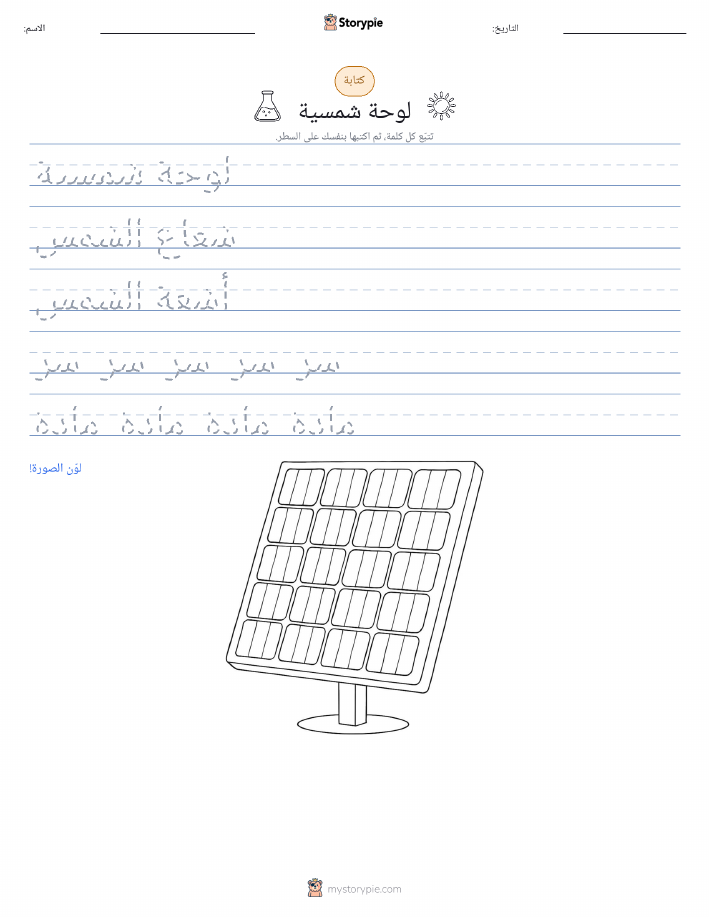 الاسم:
Storypie
التاريخ:
كتابة
لوحة شمسية
تتبّع كل كلمة، ثم اكتبها بنفسك على السطر.
لوحة شمسية
شعاع الشمس
أشعة الشمس
سر سر سر سر سر
مادة مادة مادة مادة
لوّن الصورة!
mystorypie.com